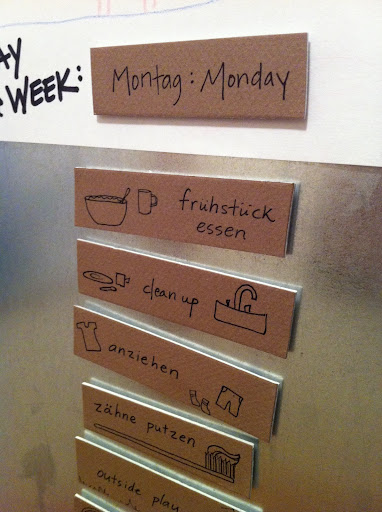 WEEK:
Montag: Monday
frühstück
essen
clean up
anziehen
zähne putzen
outside play